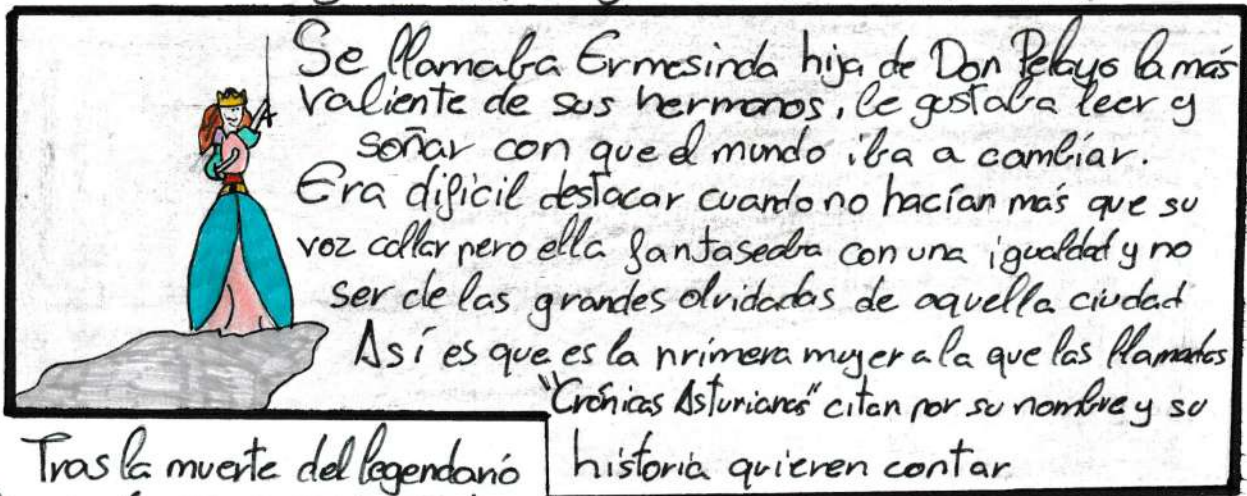 Se llamaba Ermesinda hija de Don Pelayo la más
valiente de sus hermanos, le gustaba leer y
soñar con que el mundo iba a cambiar.
Era dificil destacar cuando no hacían más que su
voz callar pero ella fantaseaba con una igualdad y no
ser de las grandes olvidadas de aquella ciudad
Así es que es la primera mujer a la que las llamadas
"Crónicas Asturianas" citan por su nombre y su
historia quieren contar
Tras la muerte del legendario